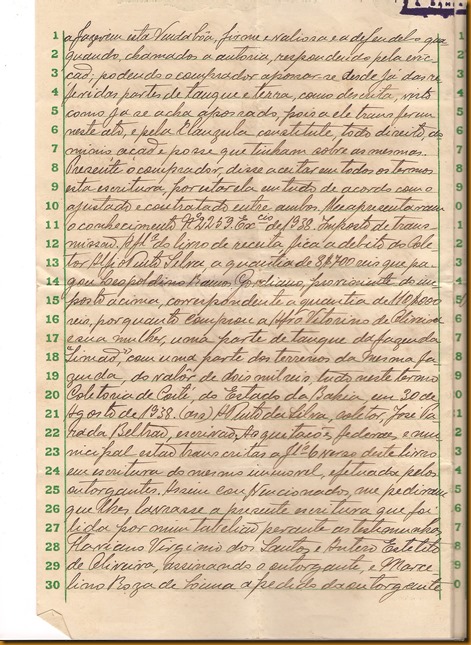 1 a fazerem esta venda bôa, firme e valiosa e a defendel-a
2 quando, chamados a autoria, respondendo pela evic
3 cção; podendo o comprador apossar-se desde já das re
4 feridas partes de tanque e terra, como descrita, visto
5 como já se acha apossado, pois a ele transferem
6 neste ato, e pela clausula constitute, todo direito, do
7 minio ação e posse que tinham sobre as mesmas.
8 Presente o comprador, disse aceitar em todos os termos
9 esta escritura, por estar ela em tudo de acordo com o
10 ajustado e contratado entre ambos. Me apresentaram
11 o conhecimento de 1938. Imposto de trans
12 missão. A do livro de receita fica a debito do Cole
13 tor Pinto Silva a quantia de reis que pa
14 gou Leopoldino Ramos Gordiano, proveniente do im
15 posto acima, correspondente a quantia de
16 reis, porquanto comprou a Vitorino de Oliveira
17 e sua mulher, uma parte de tanque da fazenda
18 "Limão", com uma parte dos terrenos da mesma fa
19 zenda, do valôr de dois mil reis, tudo neste termo
20 Coletoria de Coité, do Estado da Bahia, em 30 de
21 Agosto de 1938. (ass) Pinto da Silva, coletor, José
22 da Beltrão, escrivão. As quitações, federaes, e mu
23 nicipal estão transcritas a verso deste livro
24 em escritura do mesmo imovel, efetuada pelos
25 outorgantes. Assim convencionados, me pediram
26 que lhes lavrasse a presente escritura que foi
27 lida por mim tabelião perante as testemunhas
28 Virginio dos Santos e Antero
29 de Oliveira, assinando o outorgante, e Marce
30 lino Roza de Lima a pedido da outorgante